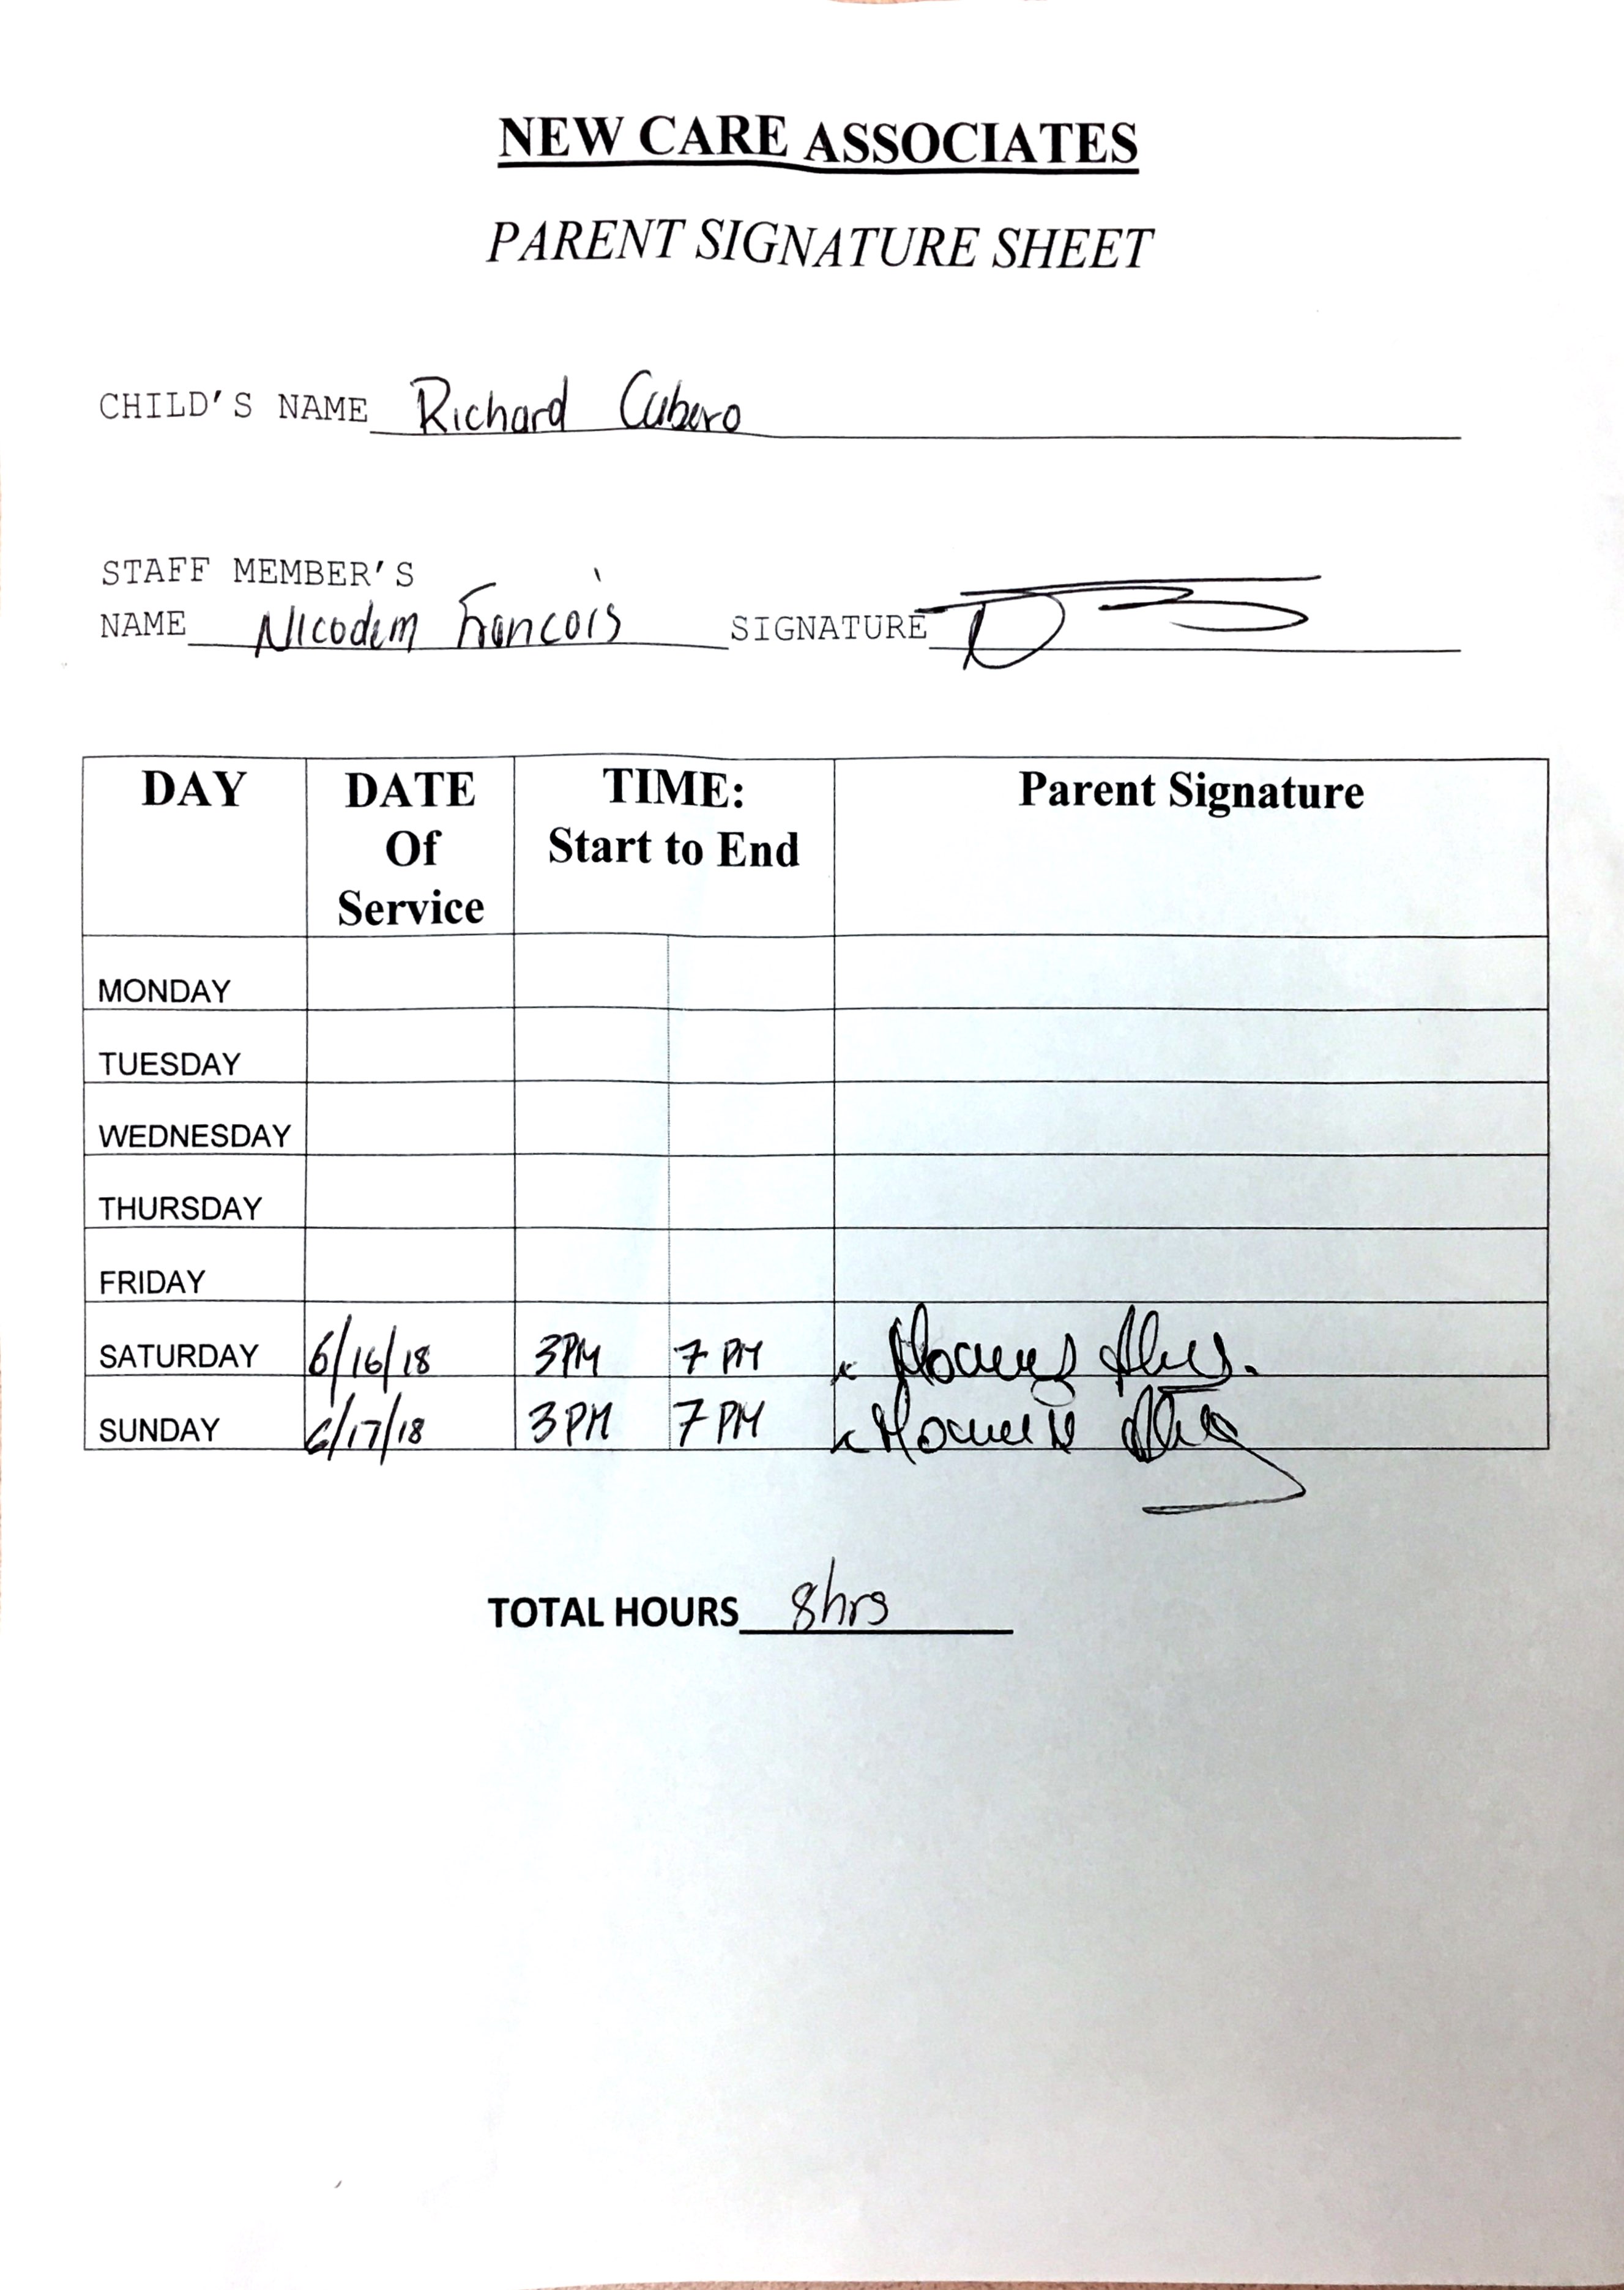 NEW CARE ASSOCIATES
PARENT SIGNATURE SHEET
CHILD'S NAME Richard Cubero
STAFF MEMBER'S
NAME Nicodem Francois SIGNATURE
DAY DATE Of Service TIME: Start to End Parent Signature
MONDAY
TUESDAY
WEDNESDAY
THURSDAY
FRIDAY
SATURDAY 6/16/18 3PM 7PM
SUNDAY 6/17/18 3PM 7PM
TOTAL HOURS 8hrs